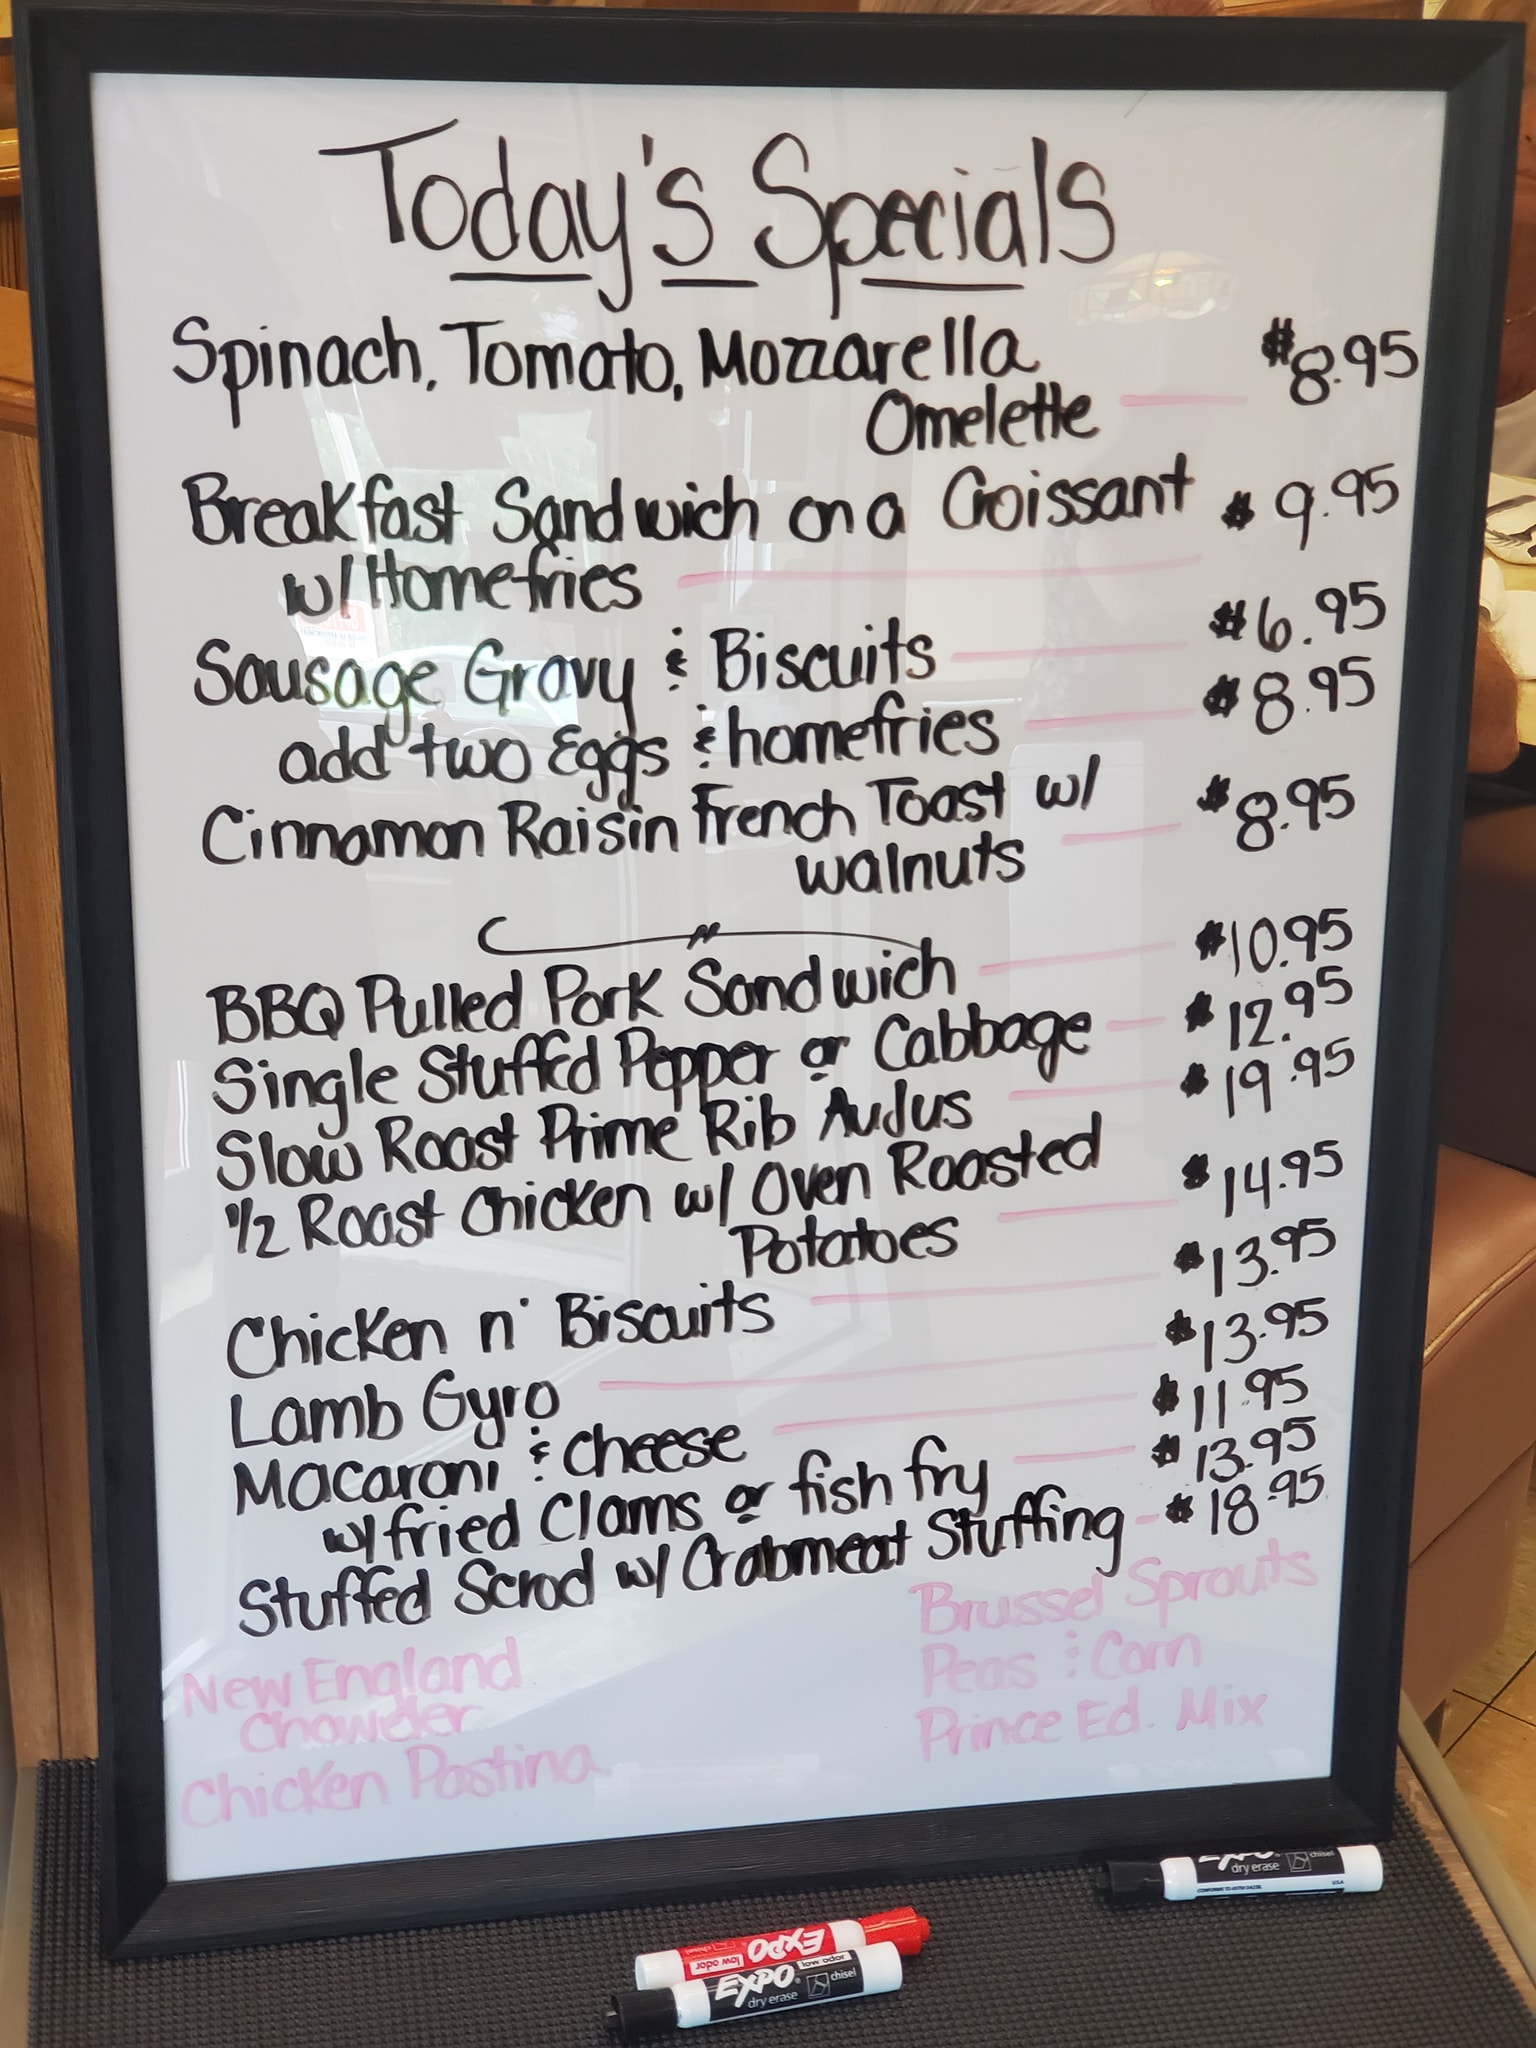 Today's Specials
Spinach, Tomato, Mozzarella $8.95
Omelette
Breakfast Sandwich on a Croissant $9.95
w/ Homefries
Sausage Gravy & Biscuits $6.95
add two Eggs & homefries $8.95
Cinnamon Raisin French Toast w/ $8.95
walnuts
BBQ Pulled Pork Sandwich $10.95
Single Stuffed Pepper or Cabbage $12.95
Slow Roast Prime Rib AuJus $19.95
1/2 Roast Chicken w/ Oven Roasted $14.95
Potatoes
Chicken n' Biscuits $13.95
Lamb Gyro $13.95
Macaroni & Cheese $11.95
w/ fried Clams or fish fry $13.95
Stuffed Scrod w/ Crabmeat Stuffing $18.95
New England
Chowder
Chicken Pastina
Brussel Sprouts
Peas & Corn
Prince Ed. Mix
EXPO
dry erase
chisel
USA
EXPO
low odor
chisel
EXPO
low odor
dry erase
chisel